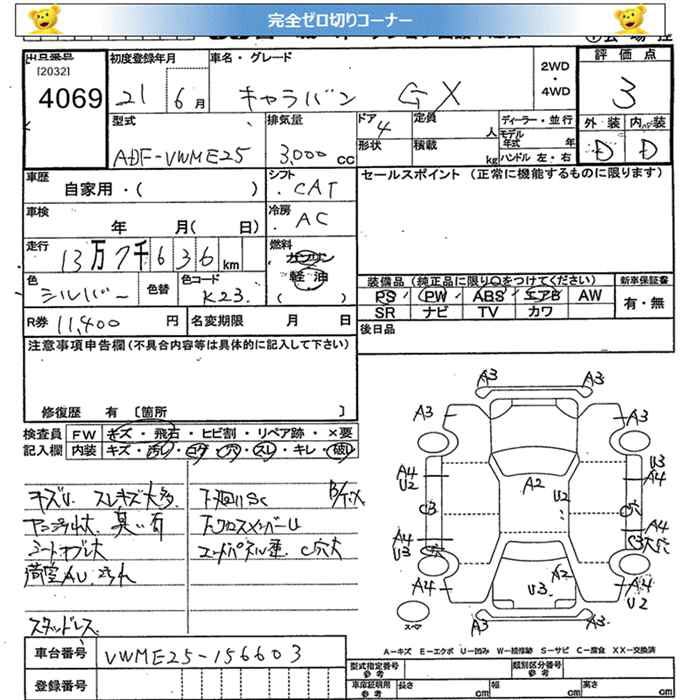 完全ゼロ切りコーナー
出品番号
[2032]
4069
初度登録年月
21 6月
車名・グレード
キャラバン GX
2WD
・
4WD
評価点
3
外装 内装
D D
型式
ADF-VWME25
排気量
3,000 cc
ドア
4
形状
定員
人
積載
kg
ディーラー・並行
モデル
年式 年
ハンドル 左・右
車歴
自家用・( )
シフト
CAT
セールスポイント (正常に機能するものに限ります)
車検
年 月( 日)
冷房
AC
走行
13万7千636 km
燃料
ガソリン
軽油
( )
色
シルバー
色替
色コード
K23
装備品 (純正品に限り○をつけてください)
PS PW ABS エアB AW
SR ナビ TV カワ
新車保証書
有・無
R券 11,400 円
名変期限 月 日
後日品
注意事項申告欄 (不具合内容等は具体的に記入して下さい)
修復歴 有 [箇所 ]
検査員
記入欄
FW キズ・飛石・ヒビ割・リペア跡・×要
内装 キズ・汚レ・コゲ・穴・スレ・キレ・破レ
キズU スレキズ大多
臭い有
荷室AU 汚れ
スタッドレス
下廻りSC
下クロスメンバーU
C穴大
A3 A3
A3 A3
A4
U2
U3
A4
A2
U2
C3
穴
A4
U3
穴
A4
C3
A4
A2
U3
A4
U2
スペア
A3 A3
A-キズ E-エクボ U-凹み W-補修跡 S-サビ C-腐食 XX-交換済
車台番号 VWME25-156603
登録番号
型式指定番号
参考
類別区分番号
参考
車庫証明用
参考
長さ cm
幅 cm
高さ cm